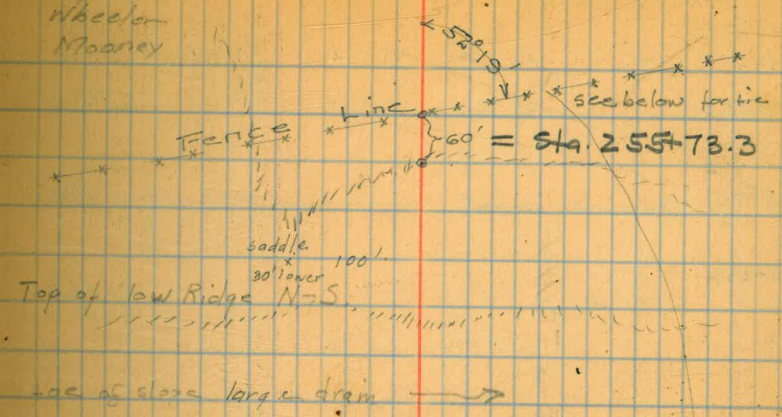 Wheeler
Mooney
52°19'
Fence Line
see below for tie
60' = Sta. 255+73.3
saddle
30' lower 100'
Top of low Ridge N-S.
toe of slope large drain